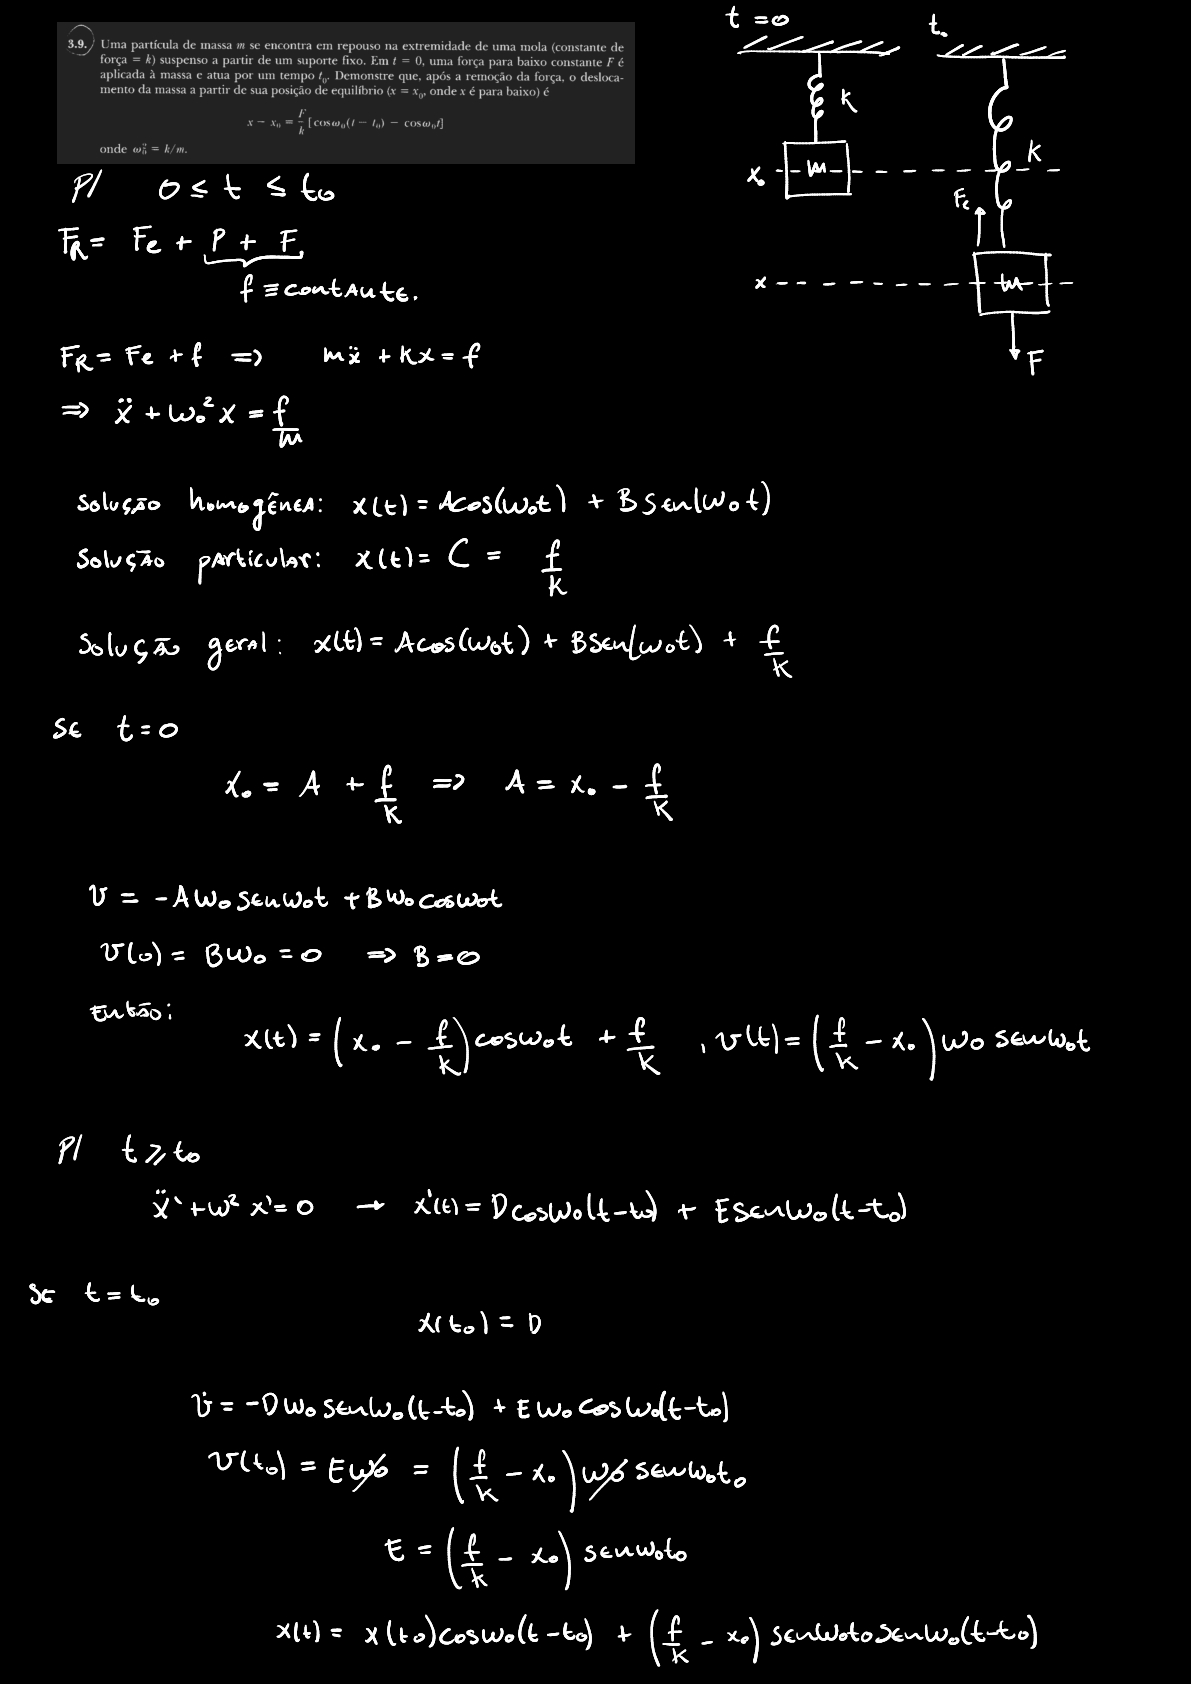 3.9. Uma partícula de massa m se encontra em repouso na extremidade de uma mola (constante de
força = k) suspenso a partir de um suporte fixo. Em t = 0, uma força para baixo constante F é
aplicada à massa e atua por um tempo t₀. Demonstre que, após a remoção da força, o desloca-
mento da massa a partir de sua posição de equilíbrio (x = x₀, onde x é para baixo) é
x − x₀ = F/k [cosω₀(t − t₀) − cosω₀t]
onde ω₀² = k/m.
t = 0
t₀
k
k
x₀
m
Fe
x
m
F
P/ 0 ≤ t ≤ t₀
F_R = Fe + P + F
f ≡ contante.
F_R = Fe + f ⇒ mẍ + kx = f
⇒ ẍ + ω₀² x = f/m
Solução homogênea: x(t) = Acos(ω₀t) + Bsen(ω₀t)
Solução particular: x(t) = C = f/k
Solução geral: x(t) = Acos(ω₀t) + Bsen(ω₀t) + f/k
Se t = 0
x₀ = A + f/k ⇒ A = x₀ − f/k
v = −Aω₀senω₀t + Bω₀cosω₀t
v(0) = Bω₀ = 0 ⇒ B = 0
Então:
x(t) = (x₀ − f/k)cosω₀t + f/k , v(t) = (f/k − x₀)ω₀ senω₀t
P/ t ≥ t₀
ẍ' + ω² x' = 0 → x'(t) = Dcosω₀(t−t₀) + Esenω₀(t−t₀)
Se t = t₀
x(t₀) = D
v̇ = −Dω₀senω₀(t−t₀) + Eω₀cosω₀(t−t₀)
v(t₀) = Eω₀ = (f/k − x₀)ω₀ senω₀t₀
E = (f/k − x₀) senω₀t₀
x(t) = x(t₀)cosω₀(t−t₀) + (f/k − x₀) senω₀t₀senω₀(t−t₀)